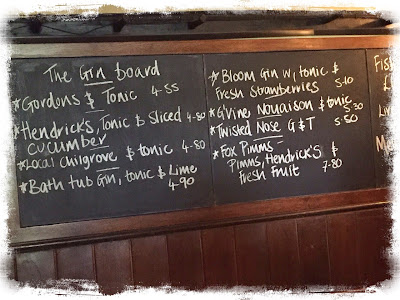 The Gin board
*Gordons $ Tonic 4-55
*Hendricks, Tonic $ sliced 4-80
cucumber
*Local Chilgrove $ tonic 4-80
*Bath tub Gin, tonic $ Lime
4-90
*Bloom Gin w, tonic $
Fresh strawberries 5-10
*G'vine Nouaison $ tonic 5-30
*Twisted Nose G $ T 5-50
*Fox Pimms -
Pimms, Hendrick's $
Fresh Fruit 7-80
Fis
£
Liv